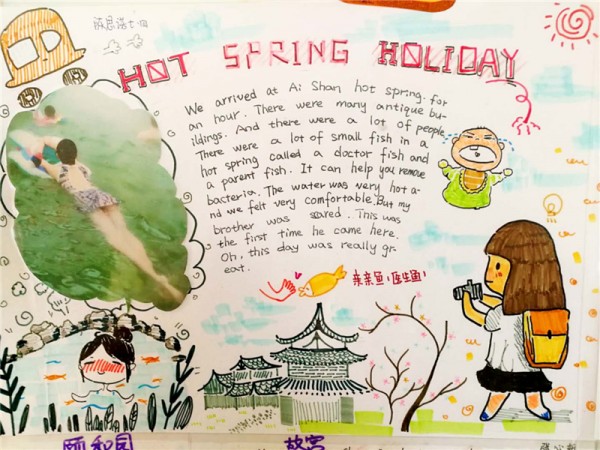 HOT SPRING HOLIDAY
We arrived at Ai Shan hot spring. for
an hour. There were many antique bu-
ildings. And there were a lot of people
There were a lot of small fish in a
hot spring called a doctor fish and
a parent fish. It can help you remove
bacteria. The water was very hot a-
nd we felt very comfortable. But my
brother was scared. This was
the first time he came here.
Oh, this day was really gr-
eat.
亲亲鱼(医生鱼)
颐和园
故宫